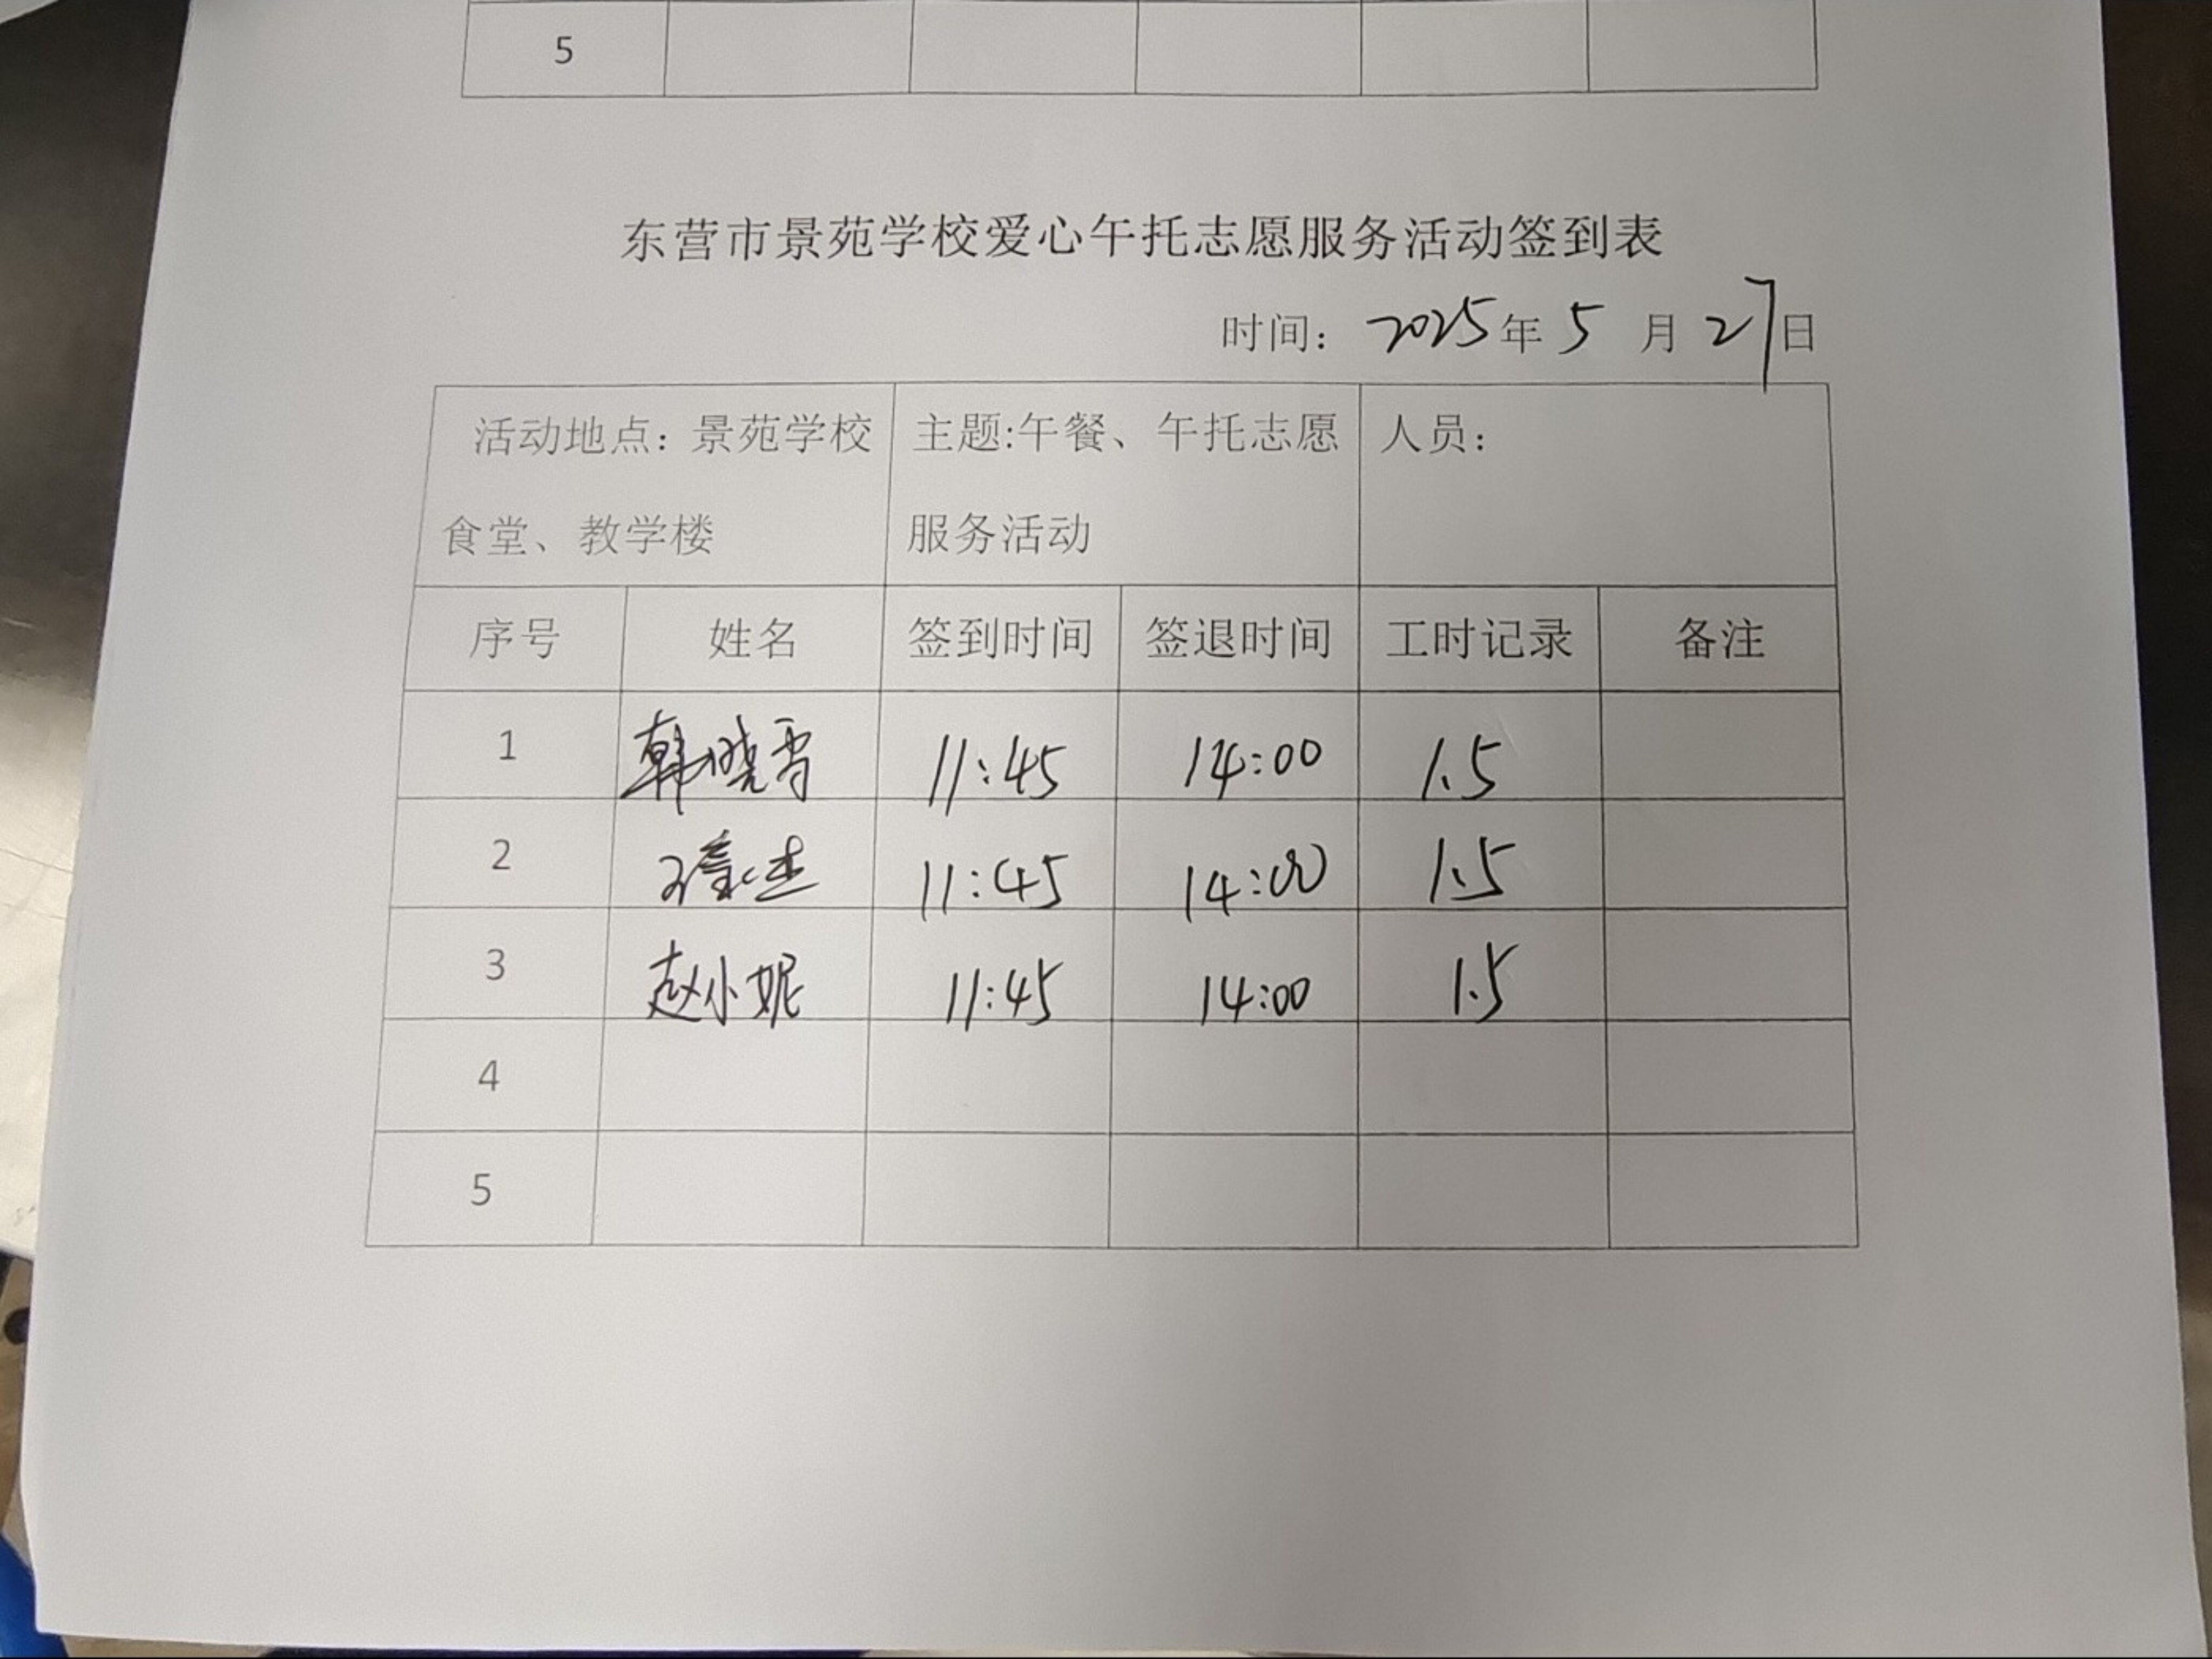 5
东营市景苑学校爱心午托志愿服务活动签到表
时间： 2025年 5 月 27日
活动地点：景苑学校 主题:午餐、午托志愿 人员：
食堂、教学楼 服务活动
序号 姓名 签到时间 签退时间 工时记录 备注
1 韩晓雪 11:45 14:00 1.5
2 11:45 14:00 1.5
3 赵小妮 11:45 14:00 1.5
4
5